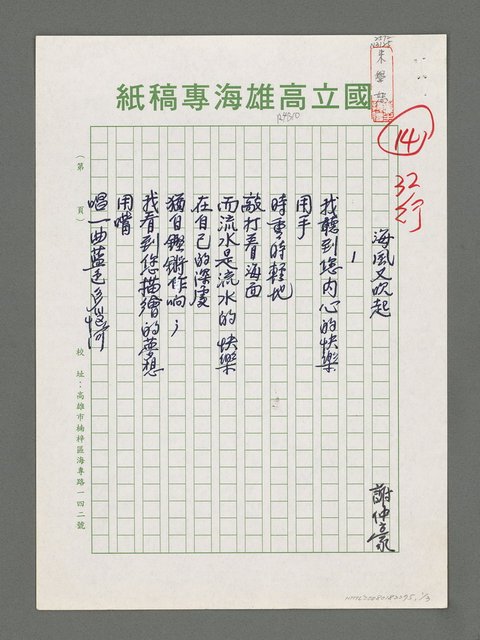 國立高雄海專專稿紙
14
32行
海風又吹起
謝仲豪
1
我聽到您內心的快樂
用手
時重時輕地
敲打着海面
而流水是流水的快樂
在自己的深處
猶自鏗鏘作响；
我看到您描繪的夢想
用嘴
唱一曲藍色多惱河
(第 頁)
校址：高雄市楠梓區海專路一四二號